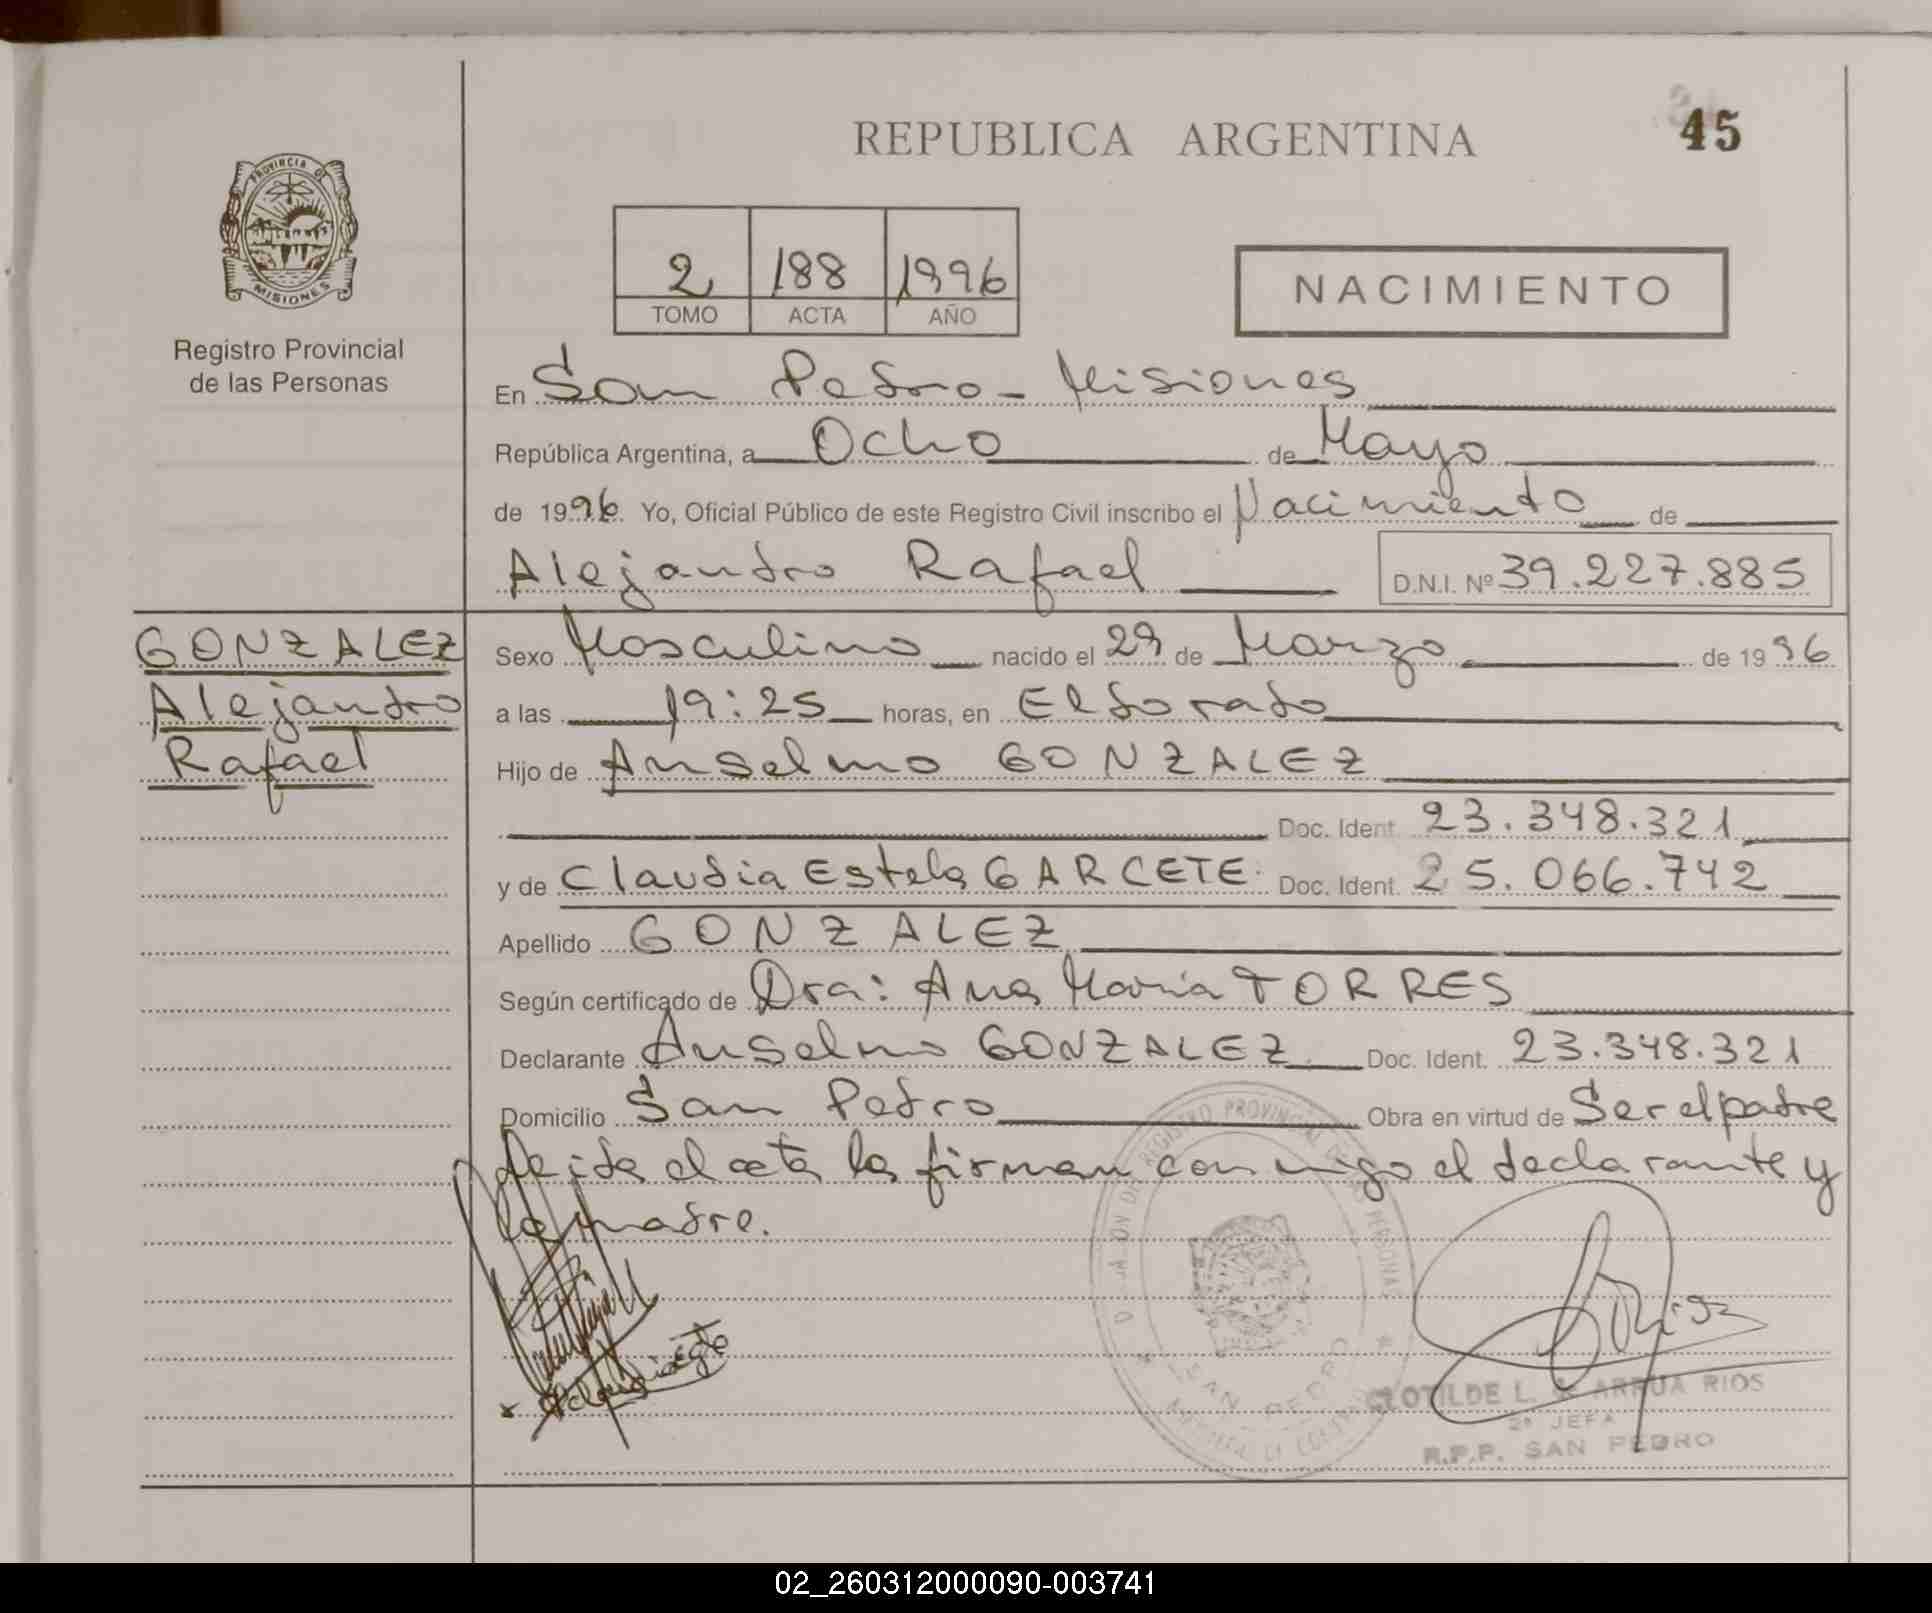 REPUBLICA ARGENTINA
45
PROVINCIA DE
MISIONES
Registro Provincial
de las Personas
2 188 1996
TOMO ACTA AÑO
NACIMIENTO
En San Pedro - Misiones
República Argentina, a Ocho de Mayo
de 1996 Yo, Oficial Público de este Registro Civil inscribo el Nacimiento de
Alejandro Rafael D.N.I. Nº 39.227.885
GONZALEZ
Alejandro
Rafael
Sexo Masculino nacido el 29 de Marzo de 1996
a las 19:25 horas, en Eldorado
Hijo de Anselmo GONZALEZ
Doc. Ident. 23.348.321
y de Claudia Estela GARCETE Doc. Ident. 25.066.742
Apellido GONZALEZ
Según certificado de Dra: Ana Maria TORRES
Declarante Anselmo GONZALEZ Doc. Ident. 23.348.321
Domicilio San Pedro Obra en virtud de Ser el padre
Leida el acta la firman conmigo el declarante y
la madre.
REGISTRO PROVINCIAL DE LAS PERSONAS
SAN PEDRO
CLOTILDE L. ARRUA RIOS
2ª JEFA
R.P.P. SAN PEDRO
02_260312000090-003741